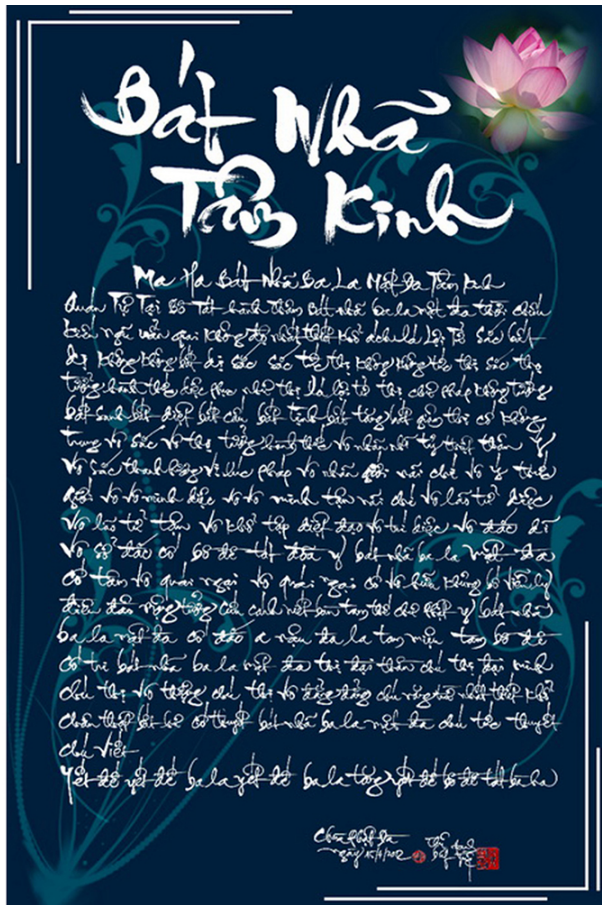 Bát Nhã
Tâm Kinh
Ma Ha Bát Nhã Ba La Mật Đa Tâm Kinh
Quán Tự Tại Bồ Tát hành thâm Bát nhã ba la mật đa thời chiếu
kiến ngũ uẩn giai không độ nhất thiết khổ ách Xá Lợi Tử Sắc bất
dị không không bất dị sắc sắc tức thị không không tức thị sắc thọ
tưởng hành thức diệc phục như thị Xá lợi tử thị chư pháp không tướng
bất sanh bất diệt bất cấu bất tịnh bất tăng bất giảm thị cố không
trung vô sắc vô thọ tưởng hành thức vô nhãn nhĩ tỷ thiệt thân ý
vô sắc thanh hương vị xúc pháp vô nhãn giới nãi chí vô ý thức
giới vô vô minh diệc vô vô minh tận nãi chí vô lão tử diệc
vô lão tử tận vô khổ tập diệt đạo vô trí diệc vô đắc dĩ
vô sở đắc cố bồ đề tát đỏa y bát nhã ba la mật đa
cố tâm vô quái ngại vô quái ngại cố vô hữu khủng bố viễn ly
điên đảo mộng tưởng cứu cánh niết bàn tam thế chư Phật y bát nhã
ba la mật đa cố đắc a nậu đa la tam miệu tam bồ đề
cố tri bát nhã ba la mật đa thị đại thần chú thị đại minh
chú thị vô thượng chú thị vô đẳng đẳng chú năng trừ nhất thiết khổ
chân thật bất hư cố thuyết bát nhã ba la mật đa chú tức thuyết
chú viết
Yết đế yết đế ba la yết đế ba la tăng yết đế bồ đề tát bà ha
ngày 15/4/2012